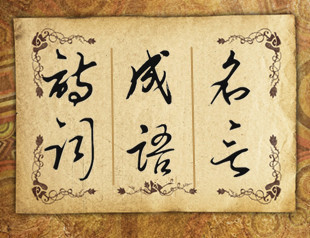 名言
成语
詩词